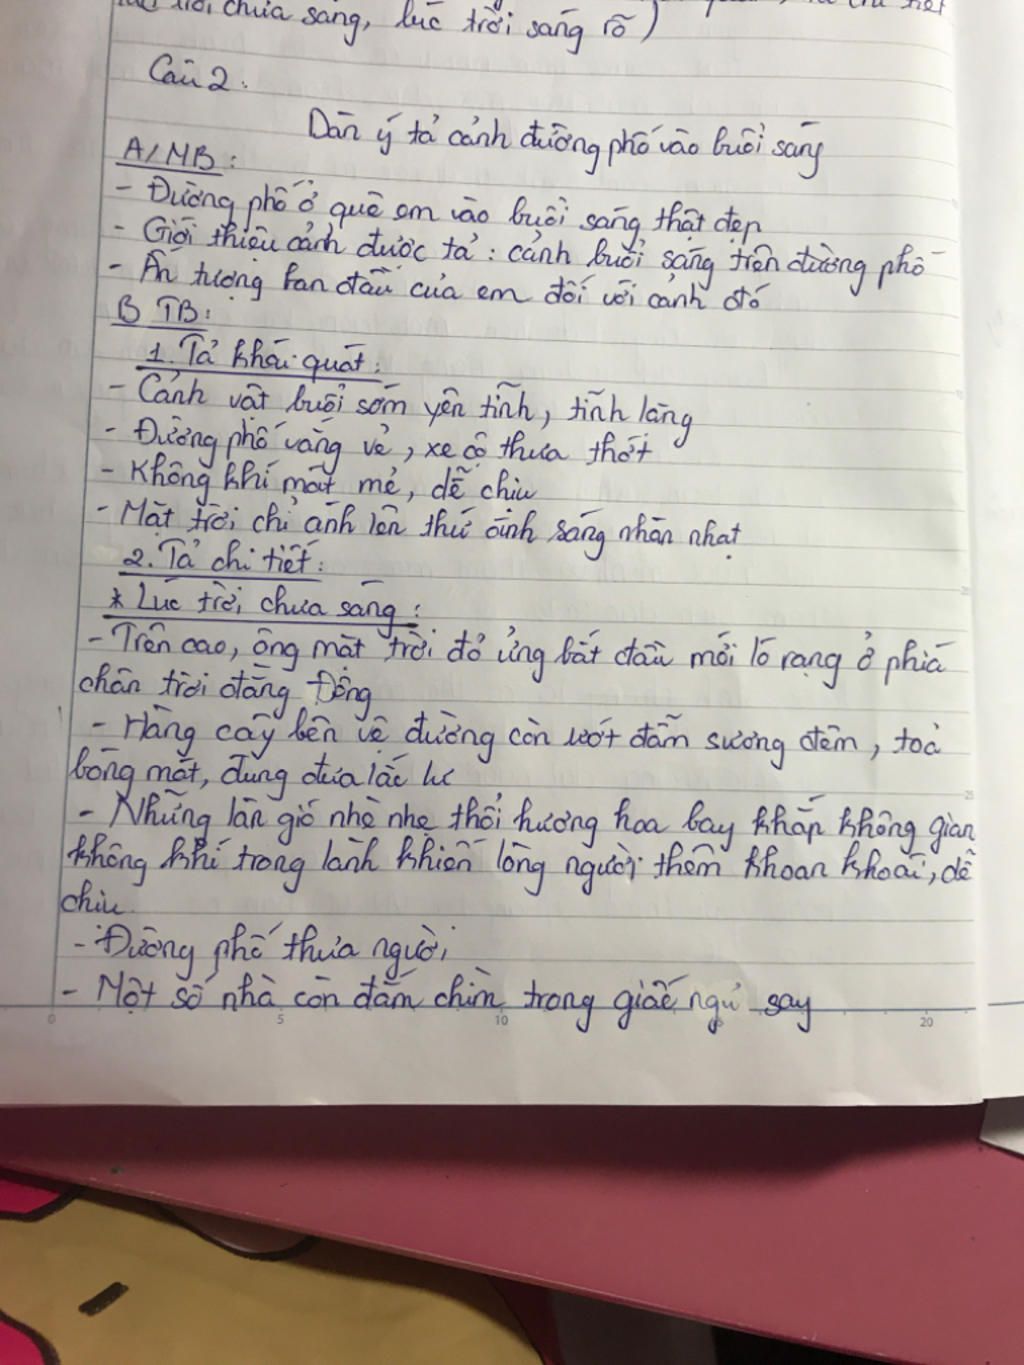 trời chưa sáng, lúc trời sáng rõ)
Câu 2:
Dàn ý tả cảnh đường phố vào buổi sáng
A/ MB:
- Đường phố ở quê em vào buổi sáng thật đẹp
- Giới thiệu cảnh được tả: cảnh buổi sáng trên đường phố
- Ấn tượng ban đầu của em đối với cảnh đó
B TB:
1. Tả khái quát:
- Cảnh vật buổi sớm yên tĩnh, tĩnh lặng
- Đường phố vắng vẻ, xe cộ thưa thớt
- Không khí mát mẻ, dễ chịu
- Mặt trời chỉ ánh lên thứ ánh sáng nhàn nhạt
2. Tả chi tiết:
* Lúc trời chưa sáng:
- Trên cao, ông mặt trời đỏ ửng bắt đầu mới ló rạng ở phía
chân trời đằng Đông
- Hàng cây bên vệ đường còn ướt đẫm sương đêm, toả
bóng mát, đung đưa lắc lư
- Những làn gió nhè nhẹ thổi hương hoa bay khắp không gian
không khí trong lành khiến lòng người thêm khoan khoái, dễ
chịu.
- Đường phố thưa người
- Một số nhà còn đắm chìm trong giấc ngủ say
0 5 10 20